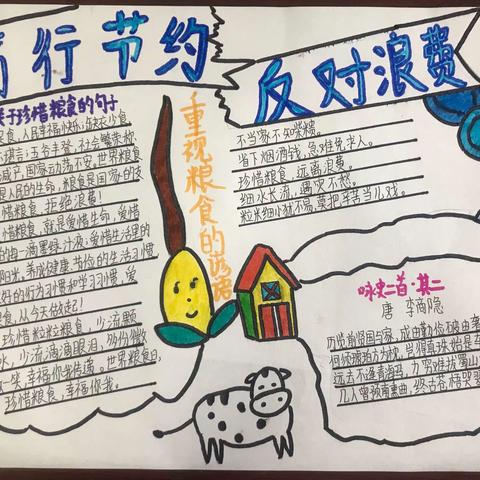 行节约
反对浪费
关于珍惜粮食的句子
粮食,人民幸福快乐;缺衣少食
谣言;五谷丰登,社会繁荣;粮
减产,国家动荡不安。世界粮食
是人民的生命,粮食是国家的支
惜粮食,拒绝浪费!
惜粮食,就是爱惜生命,爱惜
的每一滴墨绿汁液;爱惜生活里的
阳光,养成健康、节俭的生活习惯,
好的行为习惯和学习习惯,爱
食,从今天做起!
珍惜粒粒粮食,少流颗
水,少流滴滴眼泪,
笑,幸福你我传递。世界粮食日,
珍惜粮食,幸福你我。
重视粮食的谚语
不当家不知柴米贵。
省下烟酒钱,急难免求人。
珍惜粮食,远离浪费。
细水长流,遇灾不愁。
粒米细小犹不易,莫把辛苦当儿戏。
咏史二首·其二
唐 李商隐
历览前贤国与家,成由勤俭破由奢
何须琥珀方为枕,岂得真珠始是车
远去不逢青海马,力穷难拔蜀山
几人曾预南薰曲,终古苍梧哭翠